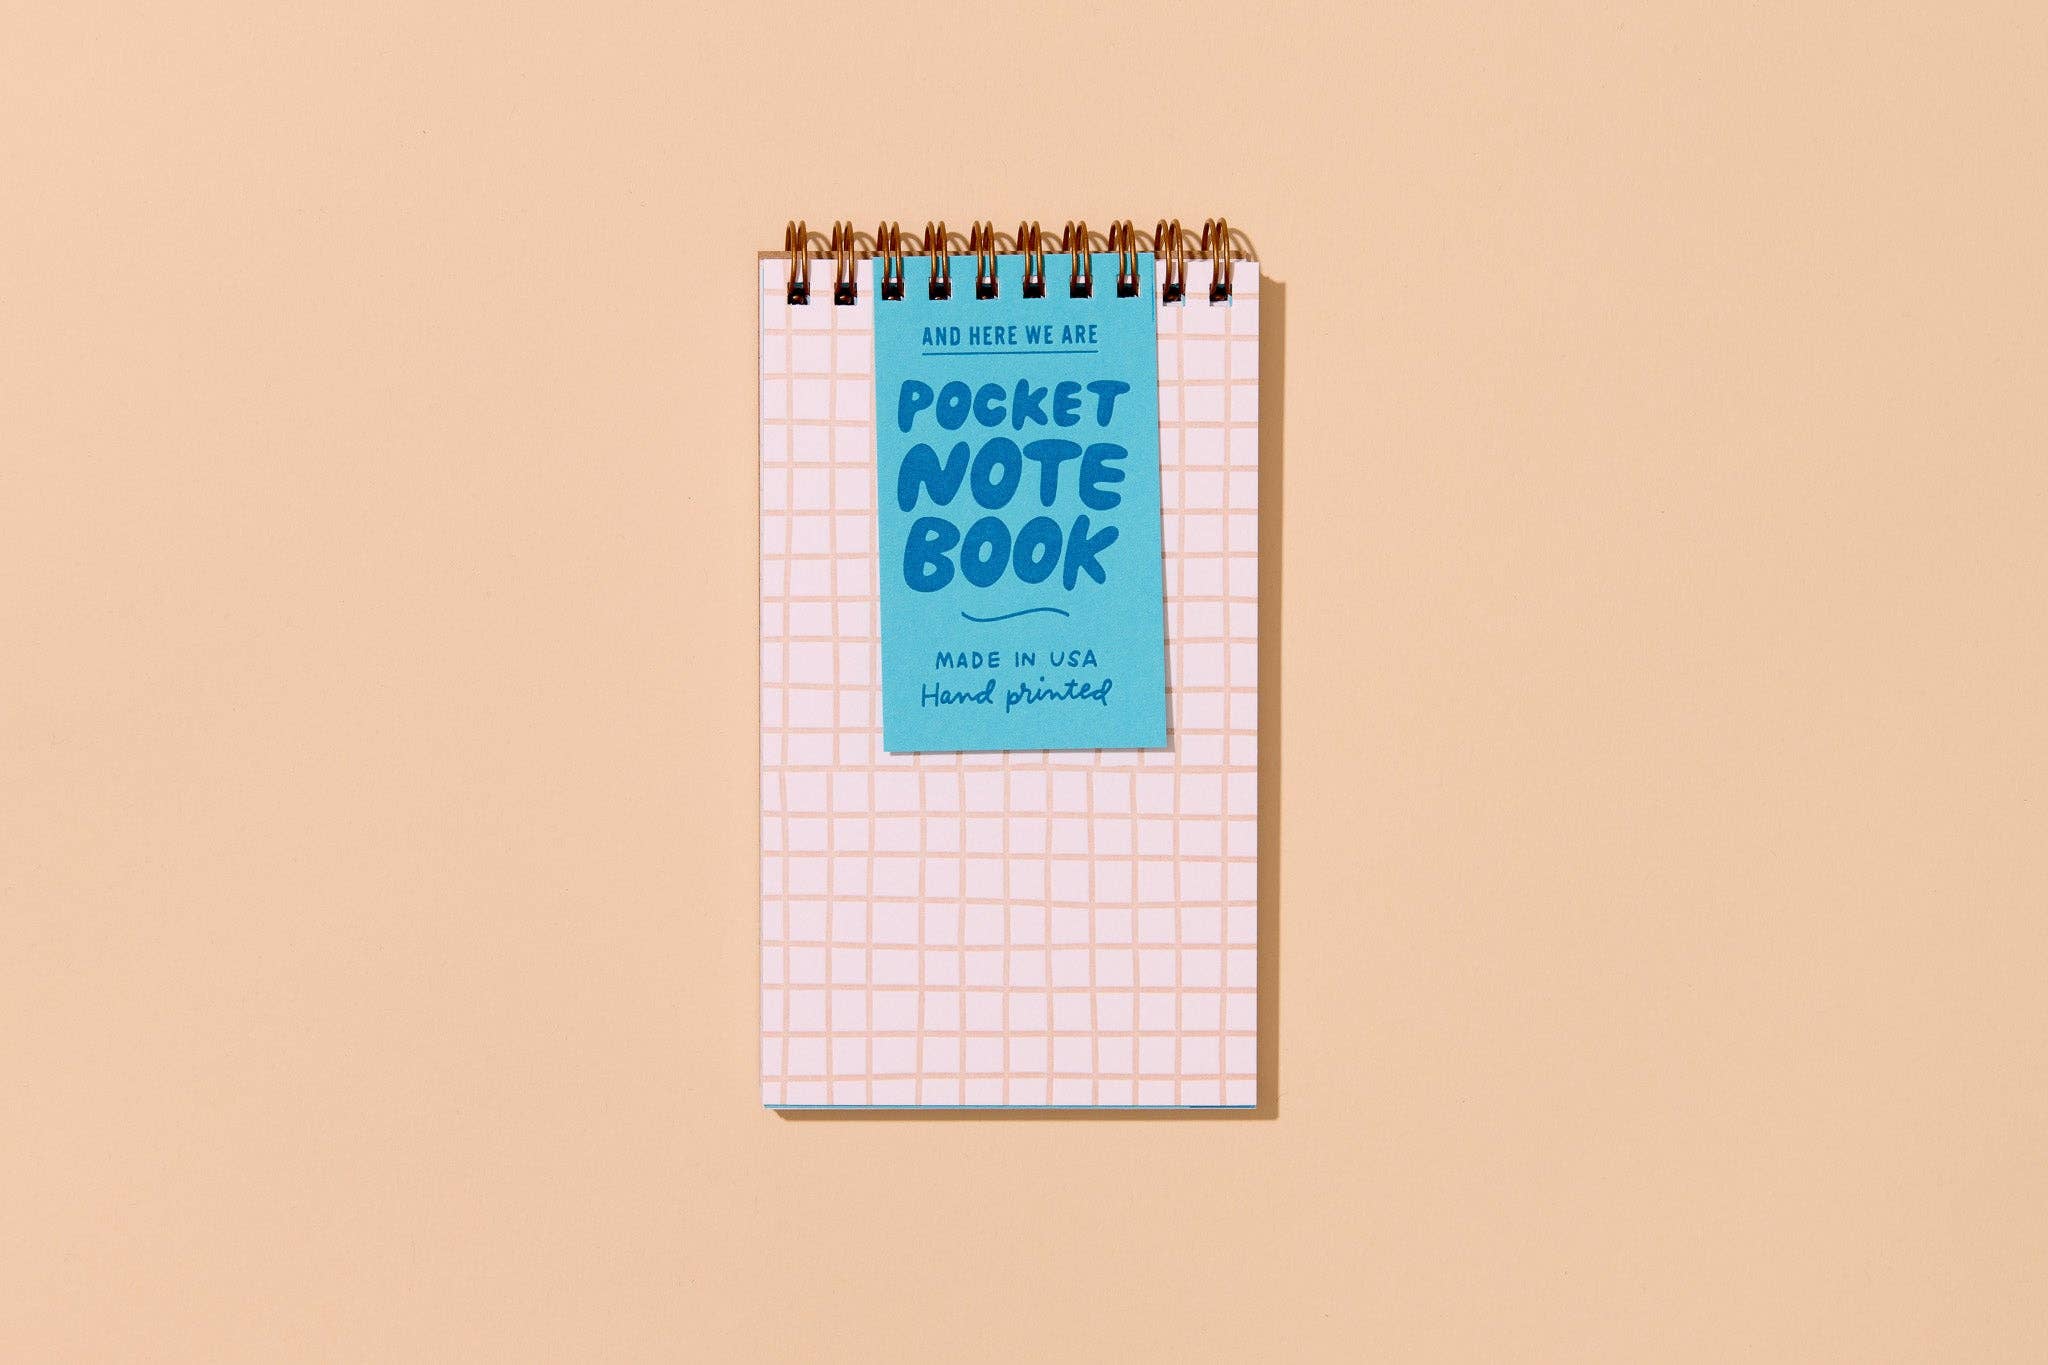 AND HERE WE ARE
POCKET
NOTE
BOOK
MADE IN USA
Hand printed